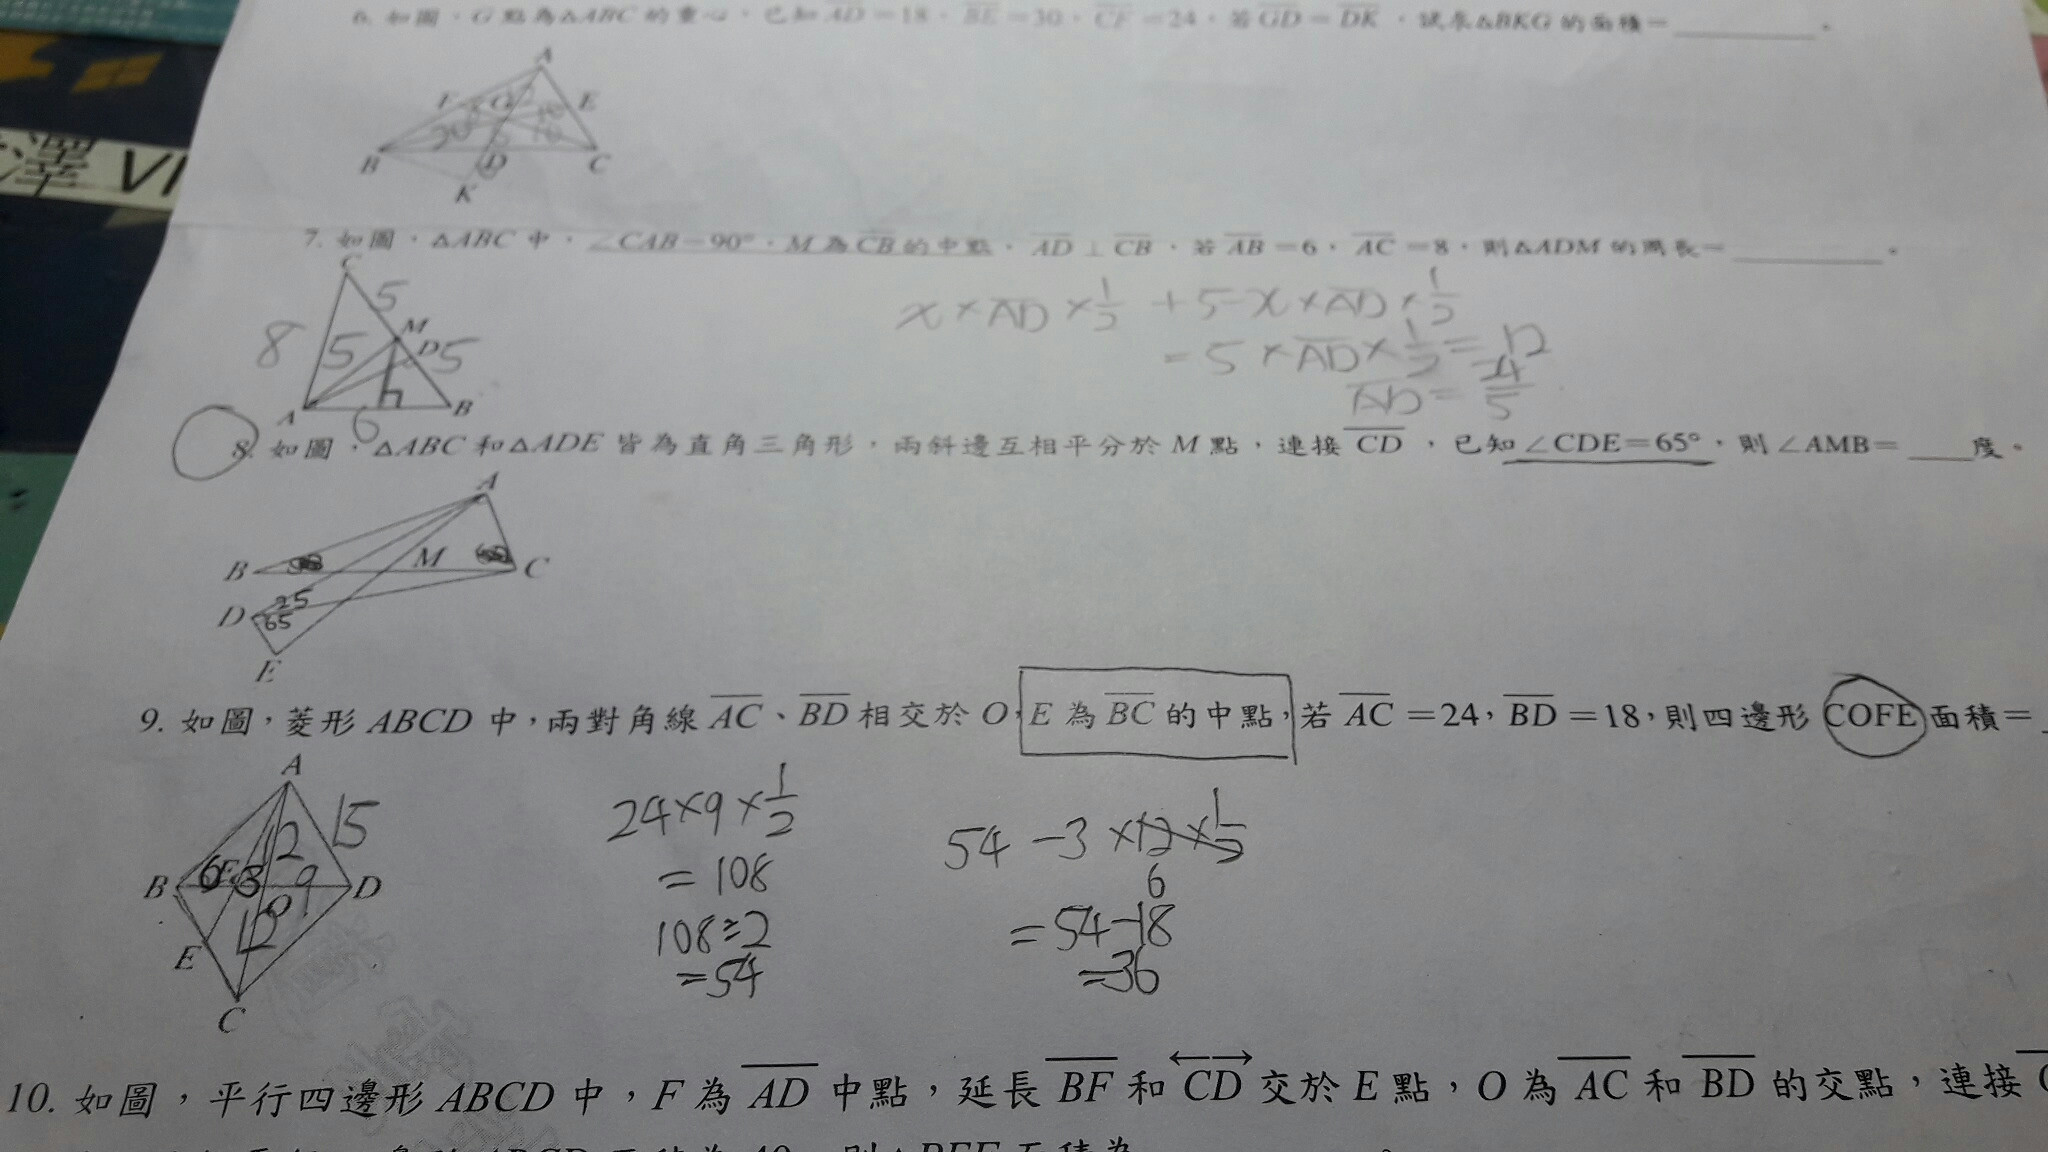 6. 如圖,G 點為△ABC 的重心,已知 AD=18,BE=30,CF=24,若 GD=DK,試求△BKG 的面積=
A
F G E
B D C
K
澤 VI
7. 如圖,△ABC 中,∠CAB=90°,M 為 CB 的中點,AD⊥CB,若 AB=6,AC=8,則△ADM 的周長=
C
5
M
8 5 D 5
A 6 B
x×AD×1/2 + 5-x×AD×1/2
=5×AD×1/2=12
AD=24/5
8. 如圖,△ABC 和△ADE 皆為直角三角形,兩斜邊互相平分於 M 點,連接 CD,已知∠CDE=65°,則∠AMB= 度。
A
B M C
D 25
65
E
9. 如圖,菱形 ABCD 中,兩對角線 AC、BD 相交於 O,E 為 BC 的中點,若 AC=24,BD=18,則四邊形 COFE 面積=
A
12 15
B 6 F 3 9 D
O
12
E
C
24×9×1/2
=108
108÷2
=54
54-3×12×1/2
6
=54-18
=36
10. 如圖,平行四邊形 ABCD 中,F 為 AD 中點,延長 BF 和 CD 交於 E 點,O 為 AC 和 BD 的交點,連接